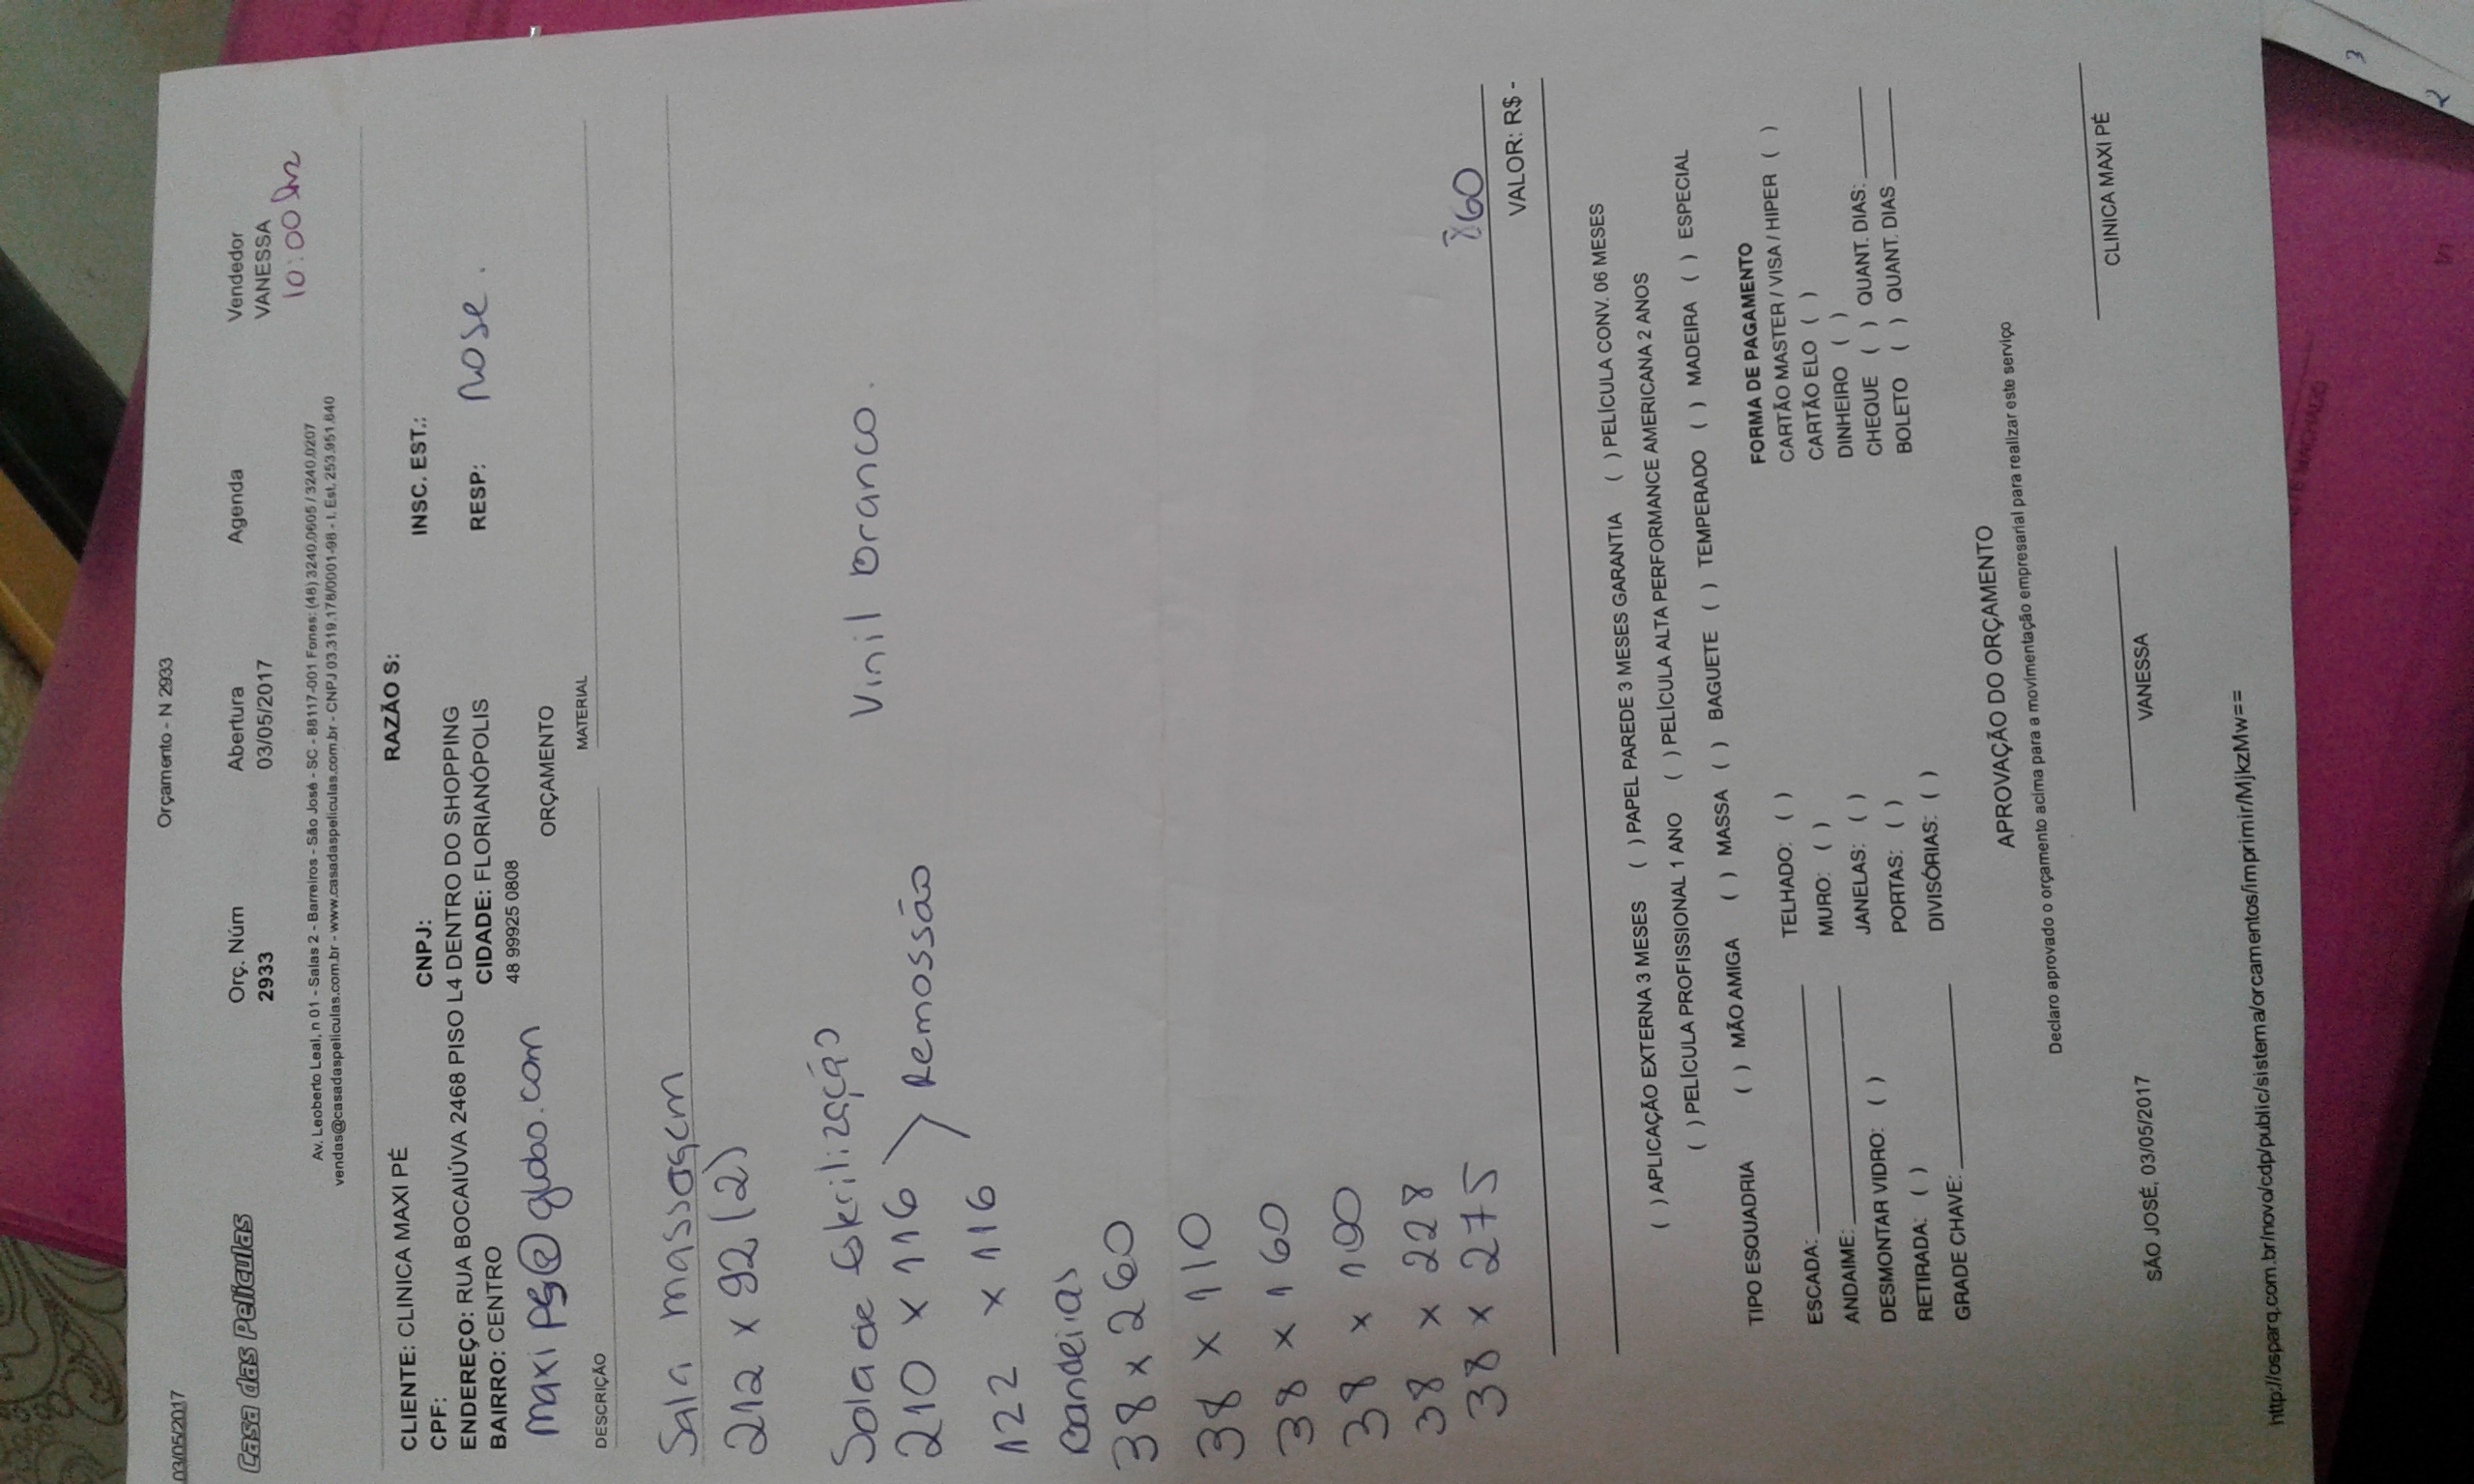 03/05/2017 Orçamento - N 2933
Casa das Películas
Orç. Núm Abertura Agenda Vendedor
2933 03/05/2017 VANESSA
10:00hr
Av. Leoberto Leal, n 01 - Salas 2 - Barreiros - São José - SC - 88117-001 Fones: (48) 3240.0605 / 3240.0207
vendas@casadaspeliculas.com.br - www.casadaspeliculas.com.br - CNPJ 03.319.178/0001-98 - I. Est. 253.951.640
CLIENTE: CLINICA MAXI PÉ RAZÃO S:
CPF: CNPJ: INSC. EST.:
ENDEREÇO: RUA BOCAIÚVA 2468 PISO L4 DENTRO DO SHOPPING
BAIRRO: CENTRO CIDADE: FLORIANÓPOLIS RESP: Rose.
48 99925 0808
maxi pe@globo.com
ORÇAMENTO
DESCRIÇÃO MATERIAL
Sala massagem
212 x 92 (2)
Sala de Esterilização Vinil branco.
210 x 116 > Remossão
122 x 116
bandeiras
38 x 260
38 x 110
38 x 160
38 x 100
38 x 228
38 x 275
860
VALOR: R$ -
( ) APLICAÇÃO EXTERNA 3 MESES ( ) PAPEL PAREDE 3 MESES GARANTIA ( ) PELÍCULA CONV. 06 MESES
( ) PELÍCULA PROFISSIONAL 1 ANO ( ) PELÍCULA ALTA PERFORMANCE AMERICANA 2 ANOS
TIPO ESQUADRIA ( ) MÃO AMIGA ( ) MASSA ( ) BAGUETE ( ) TEMPERADO ( ) MADEIRA ( ) ESPECIAL
FORMA DE PAGAMENTO
ESCADA: TELHADO: ( ) CARTÃO MASTER / VISA / HIPER ( )
ANDAIME: MURO: ( ) CARTÃO ELO ( )
DESMONTAR VIDRO: ( ) JANELAS: ( ) DINHEIRO ( )
RETIRADA: ( ) PORTAS: ( ) CHEQUE ( ) QUANT. DIAS:
GRADE CHAVE: DIVISÓRIAS: ( ) BOLETO ( ) QUANT. DIAS
APROVAÇÃO DO ORÇAMENTO
Declaro aprovado o orçamento acima para a movimentação empresarial para realizar este serviço
SÃO JOSÉ, 03/05/2017 VANESSA CLINICA MAXI PÉ
http://osparq.com.br/novo/cdp/public/sistema/orcamentos/imprimir/MjkzMw==
3
2